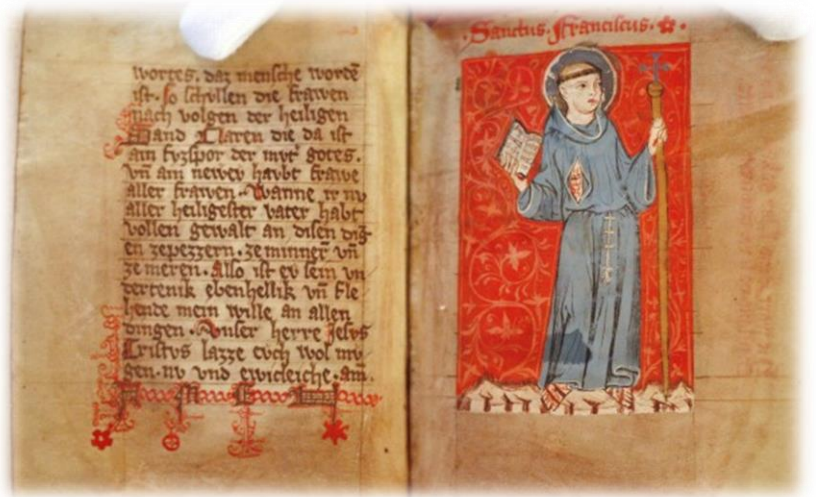 wortes. daz mensche worde
ist. So schvllen die frawen
nach volgen der heiligen
Sand Claren die da ist
ain fvzspor der mvt gotes.
vn ain newev havbt frawe
aller frawen. Wanne ir nv
aller heiligester vater habt
vollen gewalt an disen dig
en zepezzern. ze minner vn
ze meren. Also ist ev sein vn
dertenik ebenhellik vn fle
hende mein wille an allen
dingen. Vnser herre Jesvs
Cristvs lazze evch wol mv
gen. nv vnd ewicleiche. am.
Sanctus. Franciscus.